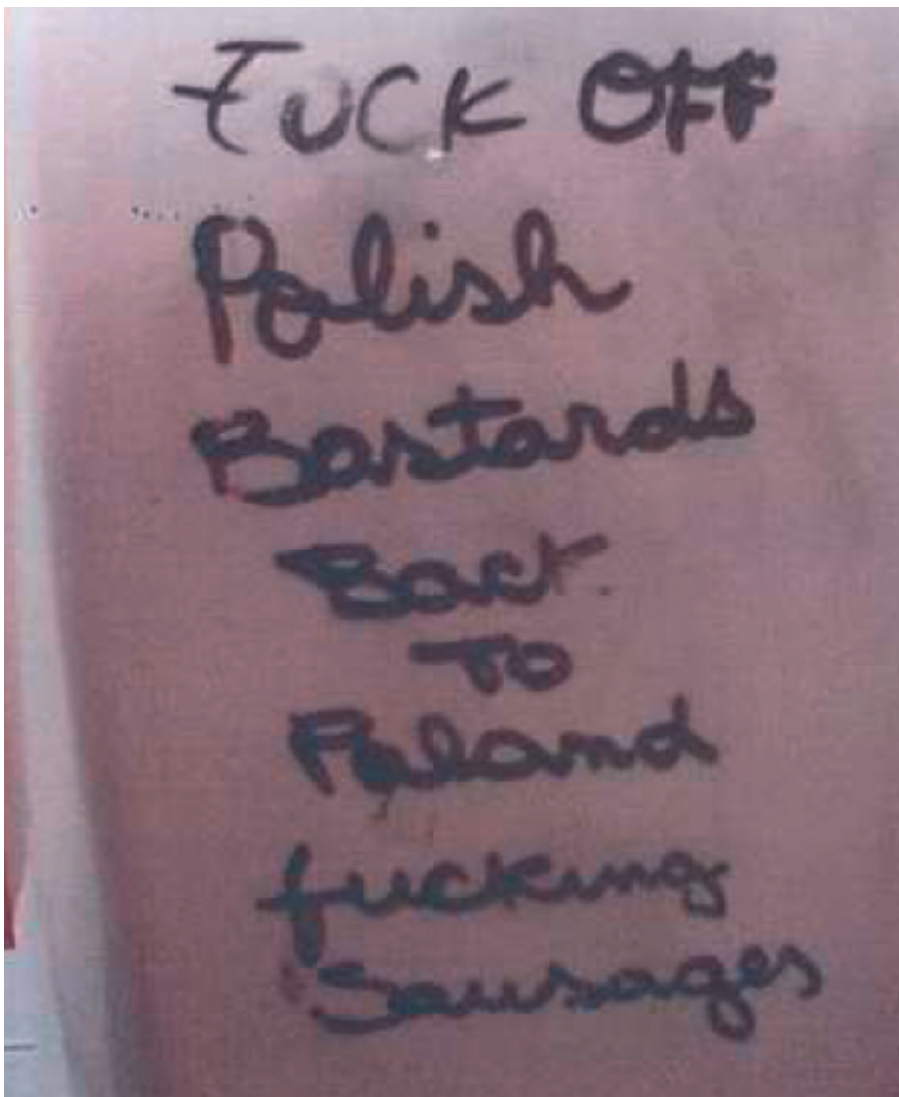 FUCK OFF
Polish
Bastards
Back
TO
Poland
fucking
Sausages